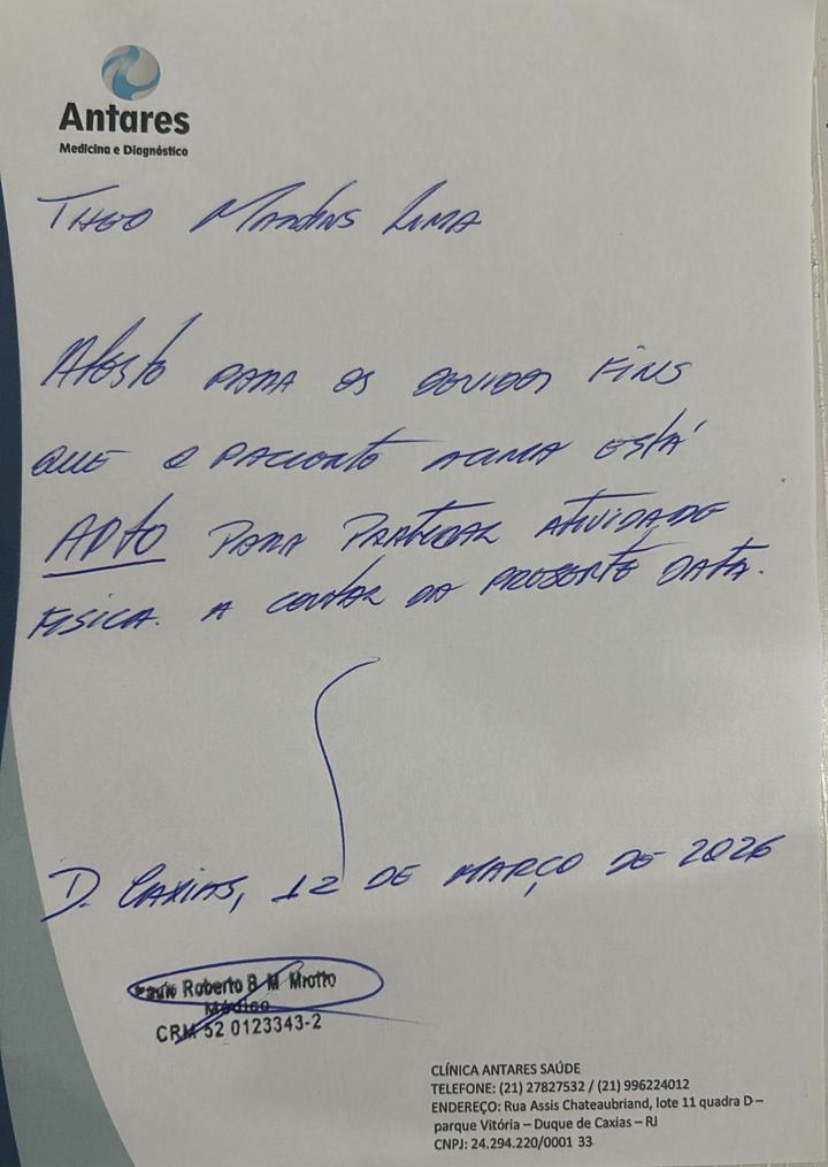 Antares
Medicina e Diagnóstico
THEO MARTINS LIMA
ATESTO PARA OS DEVIDOS FINS
QUE O PACIENTE ACIMA ESTÁ
APTO PARA PRATICAR ATIVIDADE
FISICA. A CONTAR DA PRESENTE DATA.
D. CAXIAS, 12 DE MARÇO DE 2026
Paulo Roberto B M Miotto
Médico
CRM 52 0123343-2
CLÍNICA ANTARES SAÚDE
TELEFONE: (21) 27827532 / (21) 996224012
ENDEREÇO: Rua Assis Chateaubriand, lote 11 quadra D –
parque Vitória – Duque de Caxias – RJ
CNPJ: 24.294.220/0001 33